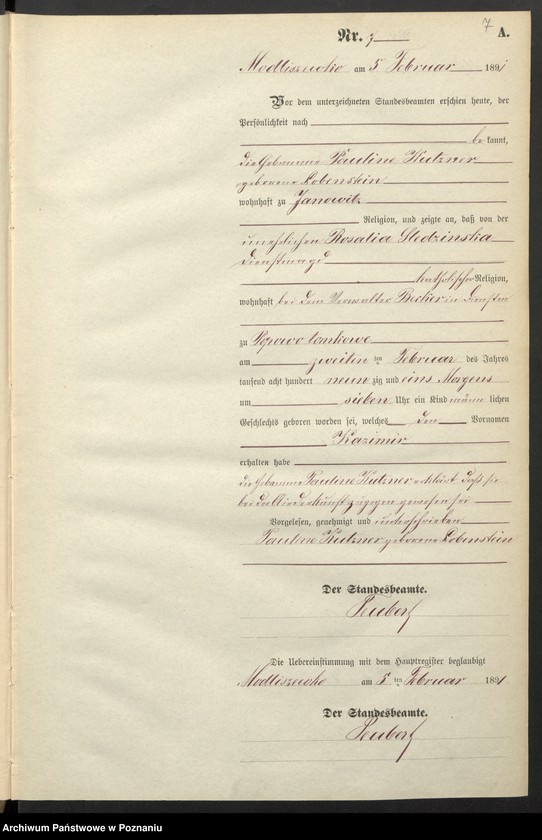 7
Nr. 7 A.
Modliszewko am 5 Februar 1891
Vor dem unterzeichneten Standesbeamten erschien heute, der
Persönlichkeit nach
bekannt,
die Hebamme Pauline Kutzner
geborene Lobenstein
wohnhaft zu Janowitz
Religion, und zeigte an, daß von der
unehelichen Rosalia Sledzinska
Dienstmagd
katholischer Religion,
wohnhaft bei dem Verwalter Becker in Diensten
zu Popowo tomkowe
am zweiten ten Februar des Jahres
tausend acht hundert neunzig und eins Morgens
um sieben Uhr ein Kind männlichen
Geschlechts geboren worden sei, welches den Vornamen
Kazimir
erhalten habe
die Hebamme Pauline Kutzner erklärt daß sie
bei der Niederkunft zugegen gewesen sei
Vorgelesen, genehmigt und unterschrieben
Pauline Kutzner geborene Lobenstein
Der Standesbeamte.
Die Uebereinstimmung mit dem Hauptregister beglaubigt
Modliszewko am 5 ten Februar 1891
Der Standesbeamte.
Archiwum Państwowe w Poznaniu